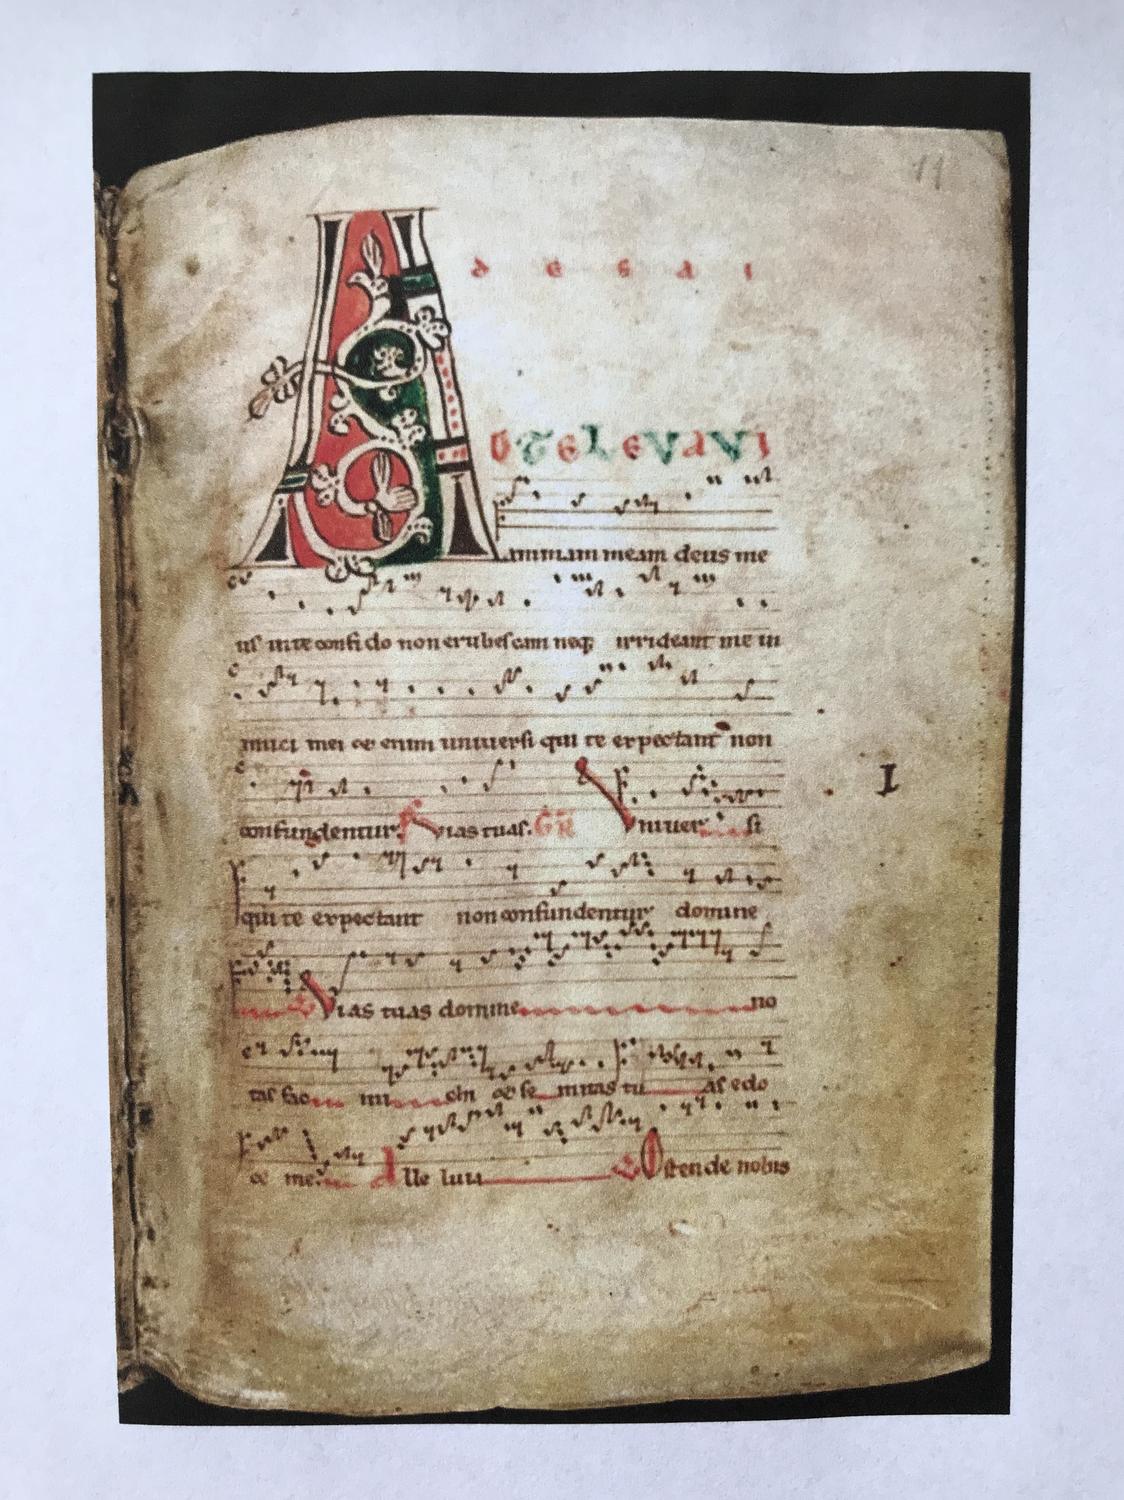 11
A
d e s a i
D TE LEVAVI
animam meam deus me
us in te confido non erubescam neq; irrideant me in
imici mei &enim universi qui te expectant non
confundentur. Vias tuas. GR Univer si
I
qui te expectant non confundentur domine
V Vias tuas domine no
tas fac mi chi & se mitas tu as edo
ce me. Alle luia V Ostende nobis